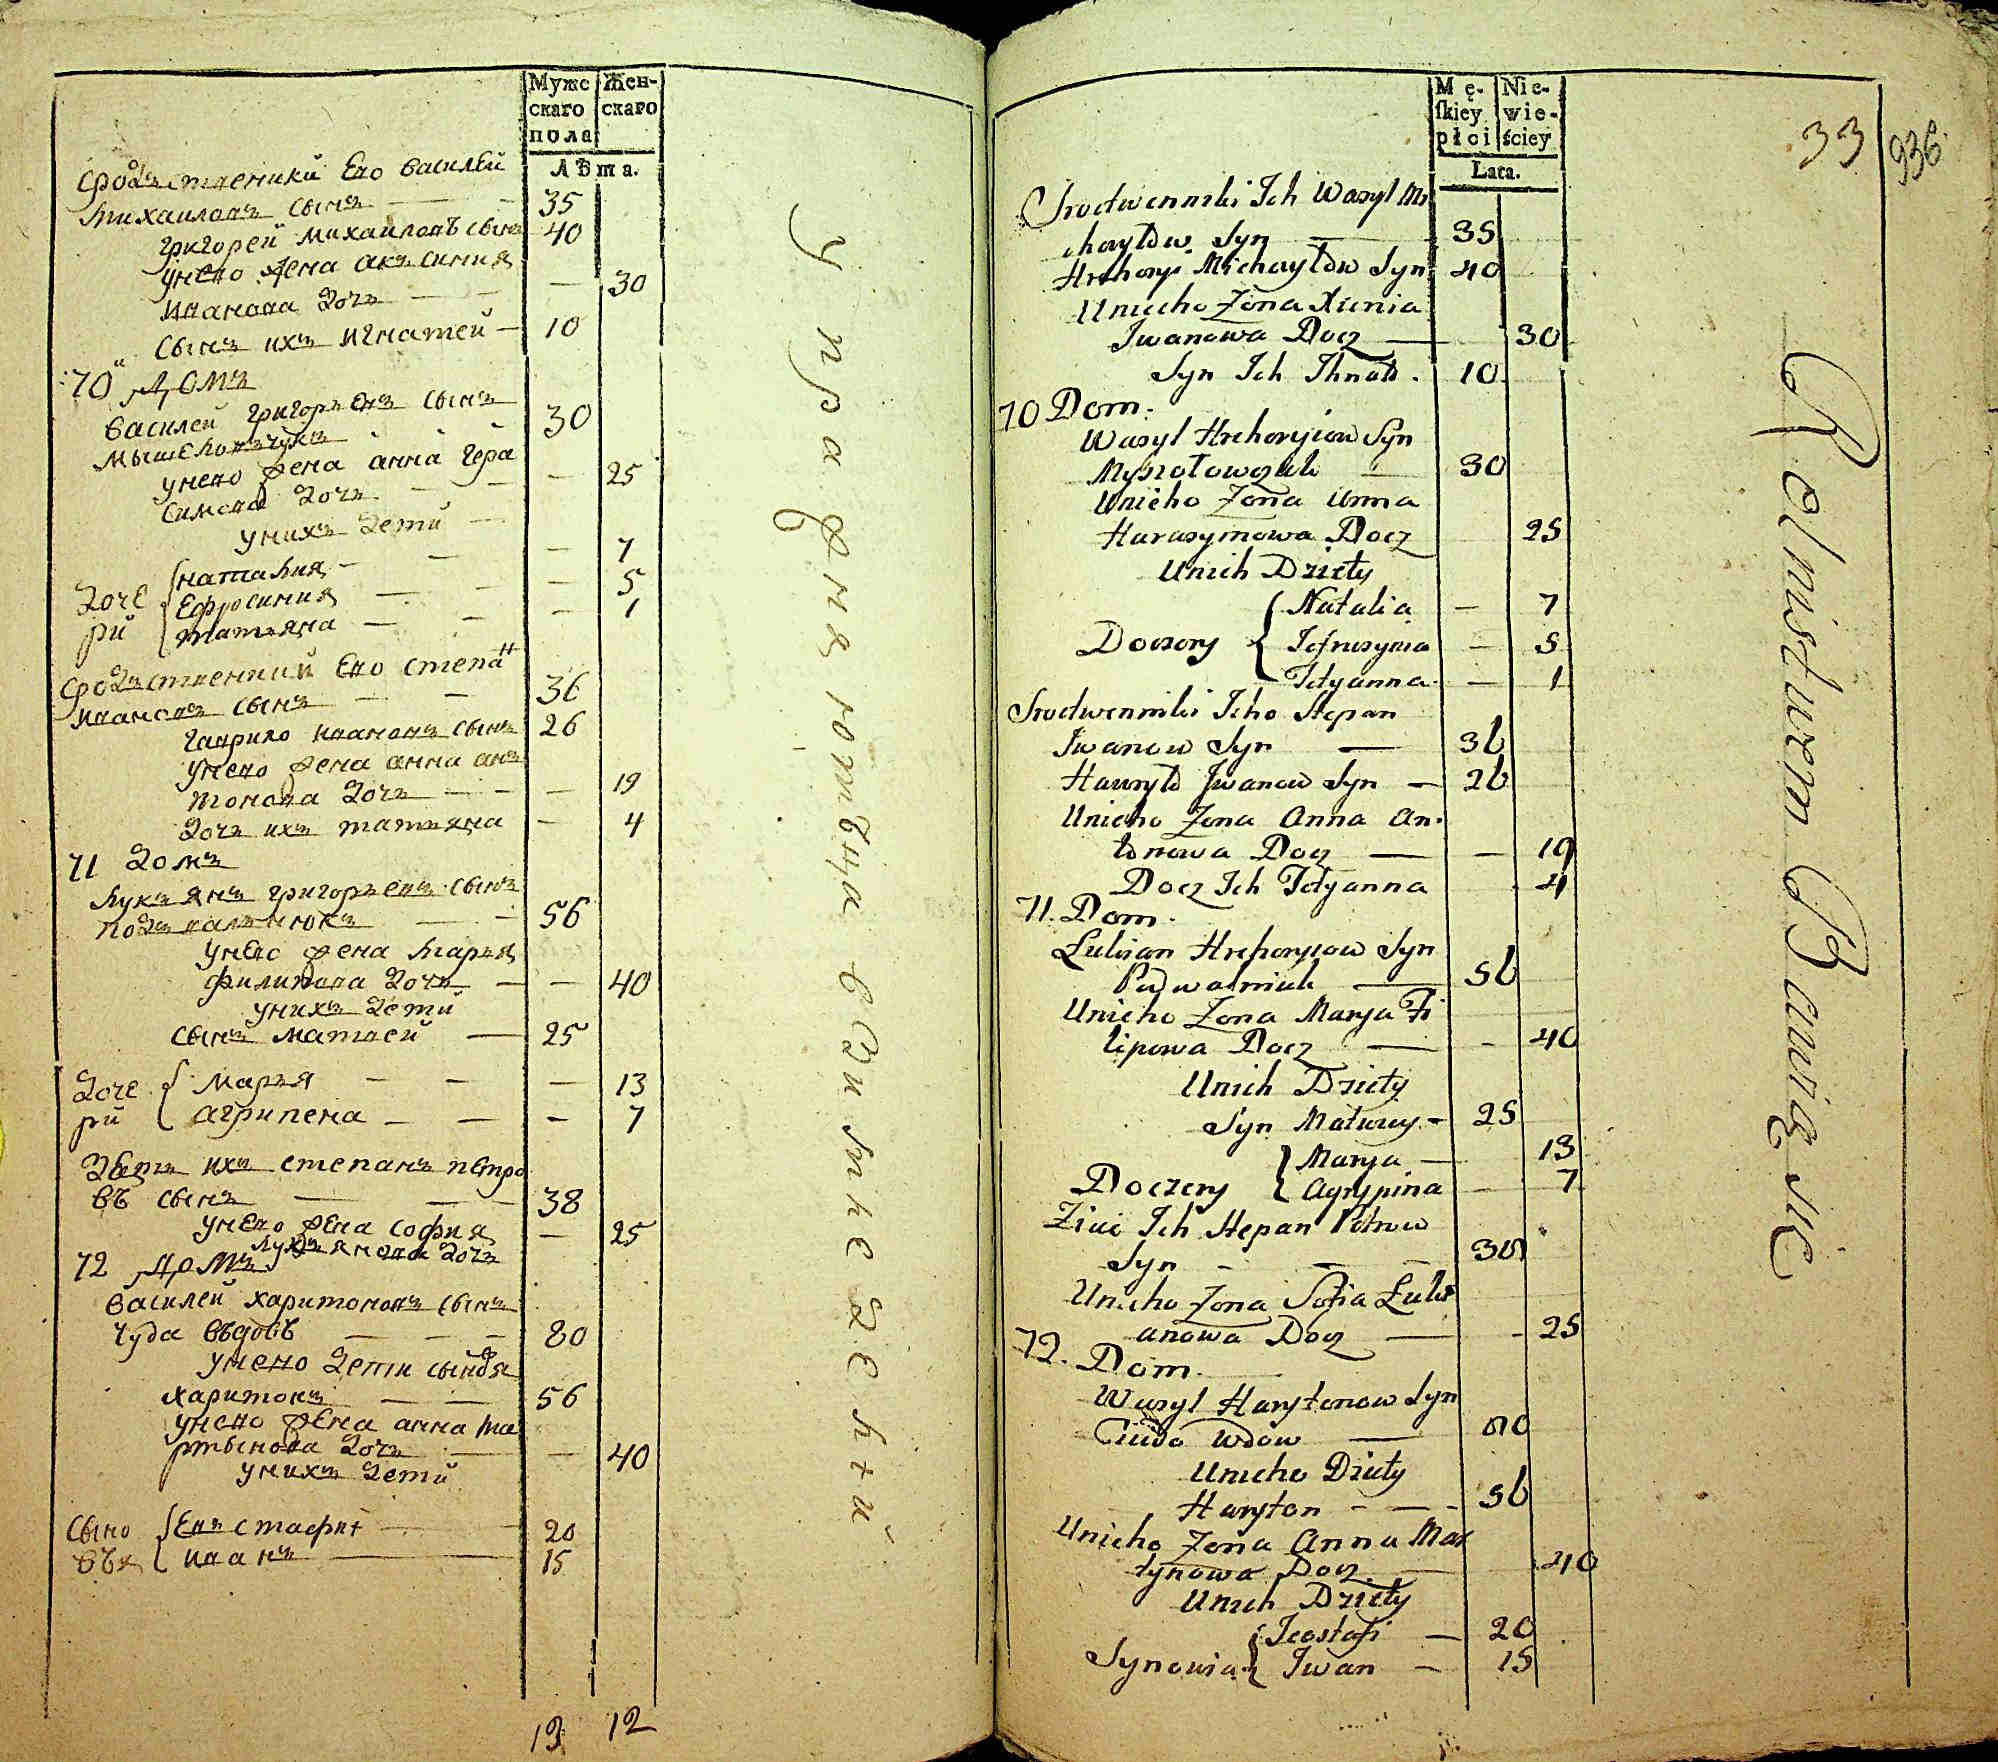 Муже
скаго
пола
Жен-
скаго
Лѣта.
сродственики Его Василей
Михаиловъ сынъ — 35
григорей михаиловъ сынъ 40
унего жена аксиния
Иванова дочь — — 30
Сынъ ихъ игнатей — 10
70 домъ
Василей григорьевъ сынъ 30
Мышеловчукъ
унего жена анна гера
симова дочь — — 25
унихъ дети
доче
ри
наталия — — 7
Ефросиния — — 5
татьяна — — 1
сродственики Его степан
ивановъ сынъ — 36
гаврило ивановъ сынъ 26
унего жена анна ан
тонова дочь — — 19
дочь ихъ татьяна — 4
71 домъ
Лукьянъ григорьевъ сынъ
подвальнюкъ — 56
унего жена Марья
филипова дочь — — 40
унихъ дети
сынъ матвей — 25
доче
ри
марья — — 13
агрипена — — 7
зять ихъ степанъ петро
въ сынъ — 38
унего жена софия — 25
лукьянова дочь
72 домъ
Василей харитоновъ сынъ
чуда въдовъ — 80
унего дети сыновя
харитонъ — 56
унего жена анна ма
ртынова дочь — — 40
унихъ дети
сыно
въя
Евстафит 20
иванъ 15
13 12
Mę-
skiey
płci
Nie-
wie-
ściey
Lata.
33
936
Srodwenniki Ich Wasyl Mi
chayłow Syn — 35
Hrehory Michayłow Syn 40
Unieho Zona Xienia
Iwanowa Docz — 30
Syn Ich Ihnat . 10
70 Dom.
Wasyl Hrehoryiow Syn
Myszołowczuk — 30
Unieho Zona Anna
Harasymowa Docz 25
Unich Dziety
Natalia — 7
Doczery Iefrosynia — 5
Tatyanna — 1
Srodwenniki Ieho Stepan
Iwanow Syn — 36
Hawryło Iwanow Syn — 26
Unieho Zona Anna An-
tonowa Docz — — 19
Docz Ich Tatyanna 4
71. Dom.
Łukian Hrehoryiow Syn
Podwalniuk — 56
Unieho Zona Marya Fi
lipowa Docz — - 40
Unich Dziety
Syn Matwiey - 25
Marya — 13
Doczery Agrypina — 7
Ziać Ich Stepan Petrow
Syn - - - 38
Unieho Zona Sofia Łuki
anowa Docz — - 25
72. Dom.
Wasyl Harytonow Syn
Ciuda Wdow — 80
Unieho Dziety
Haryton - — - 56
Unieho Zona Anna Mar
tynowa Docz. — 40
Unich Dziety
Ieostafi — 20
Synowia Iwan — 15